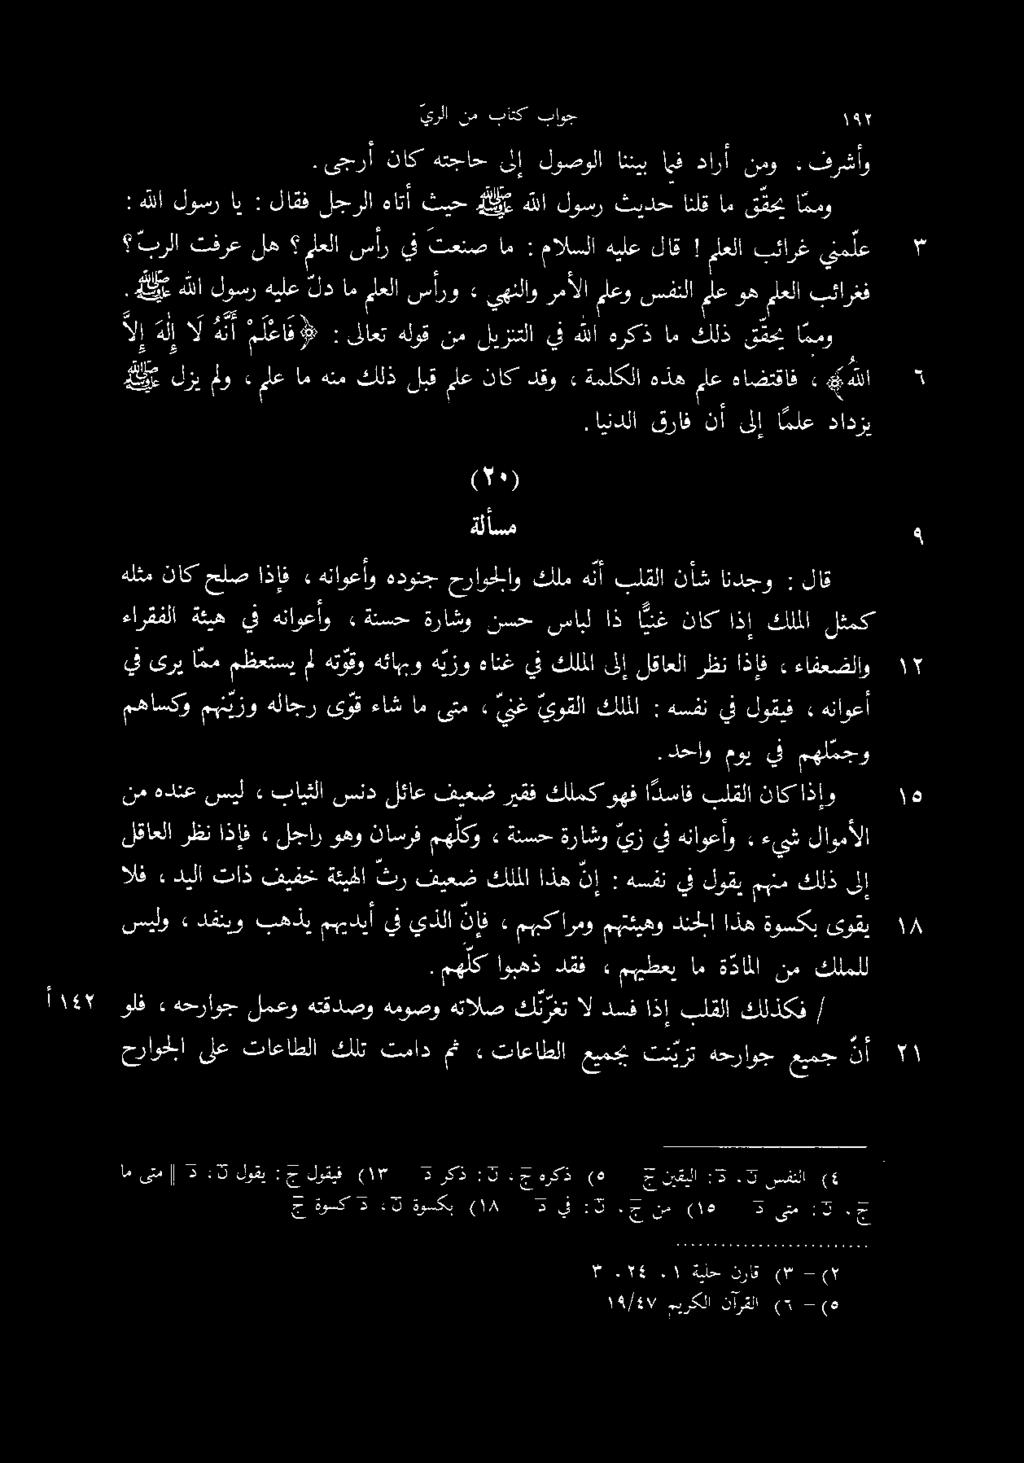 ١٩٢ جواب كتاب من الريّ
وأشرف، ومن أراد فيما بيننا الوصول إلى حاجته كان أرجى.
وممّا يحقّق ما قلنا حديث رسول الله ﷺ حيث أتاه الرجل فقال: يا رسول الله:
٣ علّمني غرائب العلم! قال عليه السلام: ما صنعتَ في رأس العلم؟ هل عرفت الربّ؟
فغرائب العلم هو علم النفس وعلم الأمر والنهي، ورأس العلم ما دلّ عليه رسول الله ﷺ.
وممّا يحقّق ذلك ما ذكره الله في التنزيل من قوله تعالى: ﴿فَاعْلَمْ أَنَّهُ لَا إِلَٰهَ إِلاَّ
٦ اللهُ﴾، فاقتضاه علم هذه الكلمة، وقد كان علم قبل ذلك منه ما علم، ولم يزل ﷺ
يزداد علماً إلى أن فارق الدنيا.
(٢٠)
٩ مسألة
قال: وجدنا شأن القلب أنّه ملك والجوارح جنوده وأعوانه، فإذا صلح كان مثله
كمثل الملك إذا كان غنيّاً ذا لباس حسن وشارة حسنة، وأعوانه في هيئة الفقراء
١٢ والضعفاء، فإذا نظر العاقل إلى الملك في غناه وزيّه وبهائه وقوّته لم يستعظم ممّا يرى في
أعوانه، فيقول في نفسه: الملك القويّ غنيّ، متى ما شاء قوّى رجاله وزيّنهم وكساهم
وجمّلهم في يوم واحد.
١٥ وإذا كان القلب فاسداً فهو كملك فقير ضعيف عائل دنس الثياب، ليس عنده من
الأموال شيء، وأعوانه في زيّ وشارة حسنة، وكلّهم فرسان وهو راجل، فإذا نظر العاقل
إلى ذلك منهم يقول في نفسه: إنّ هذا الملك ضعيف رثّ الهيئة خفيف ذات اليد، فلا
١٨ يقوى بكسوة هذا الجند وهيئتهم ومراكبهم، فإنّ الذي في أيديهم يذهب وينفد، وليس
للملك من المادّة ما يعطيهم، فقد ذهبوا كلّهم.
/ فكذلك القلب إذا فسد لا تغرّنّك صلاته وصومه وصدقته وعمل جوارحه، فلو ١٤٢أ
٢١ أنّ جميع جوارحه تزيّنت بجميع الطاعات، ثم دامت تلك الطاعات على الجوارح
٤) النفس ن، د: اليقين ج ٥) ذكره ج، ن: ذكر د ١٣) فيقول ج: يقول ن، د || متى ما
ج، ن: متى د ١٥) من ج، ن: في د ١٨) بكسوة ن، د كسوة ج
٢) – ٣) قارن حلية ١، ٢٤، ٣
٥) – ٦) القرآن الكريم ١٩/٤٧